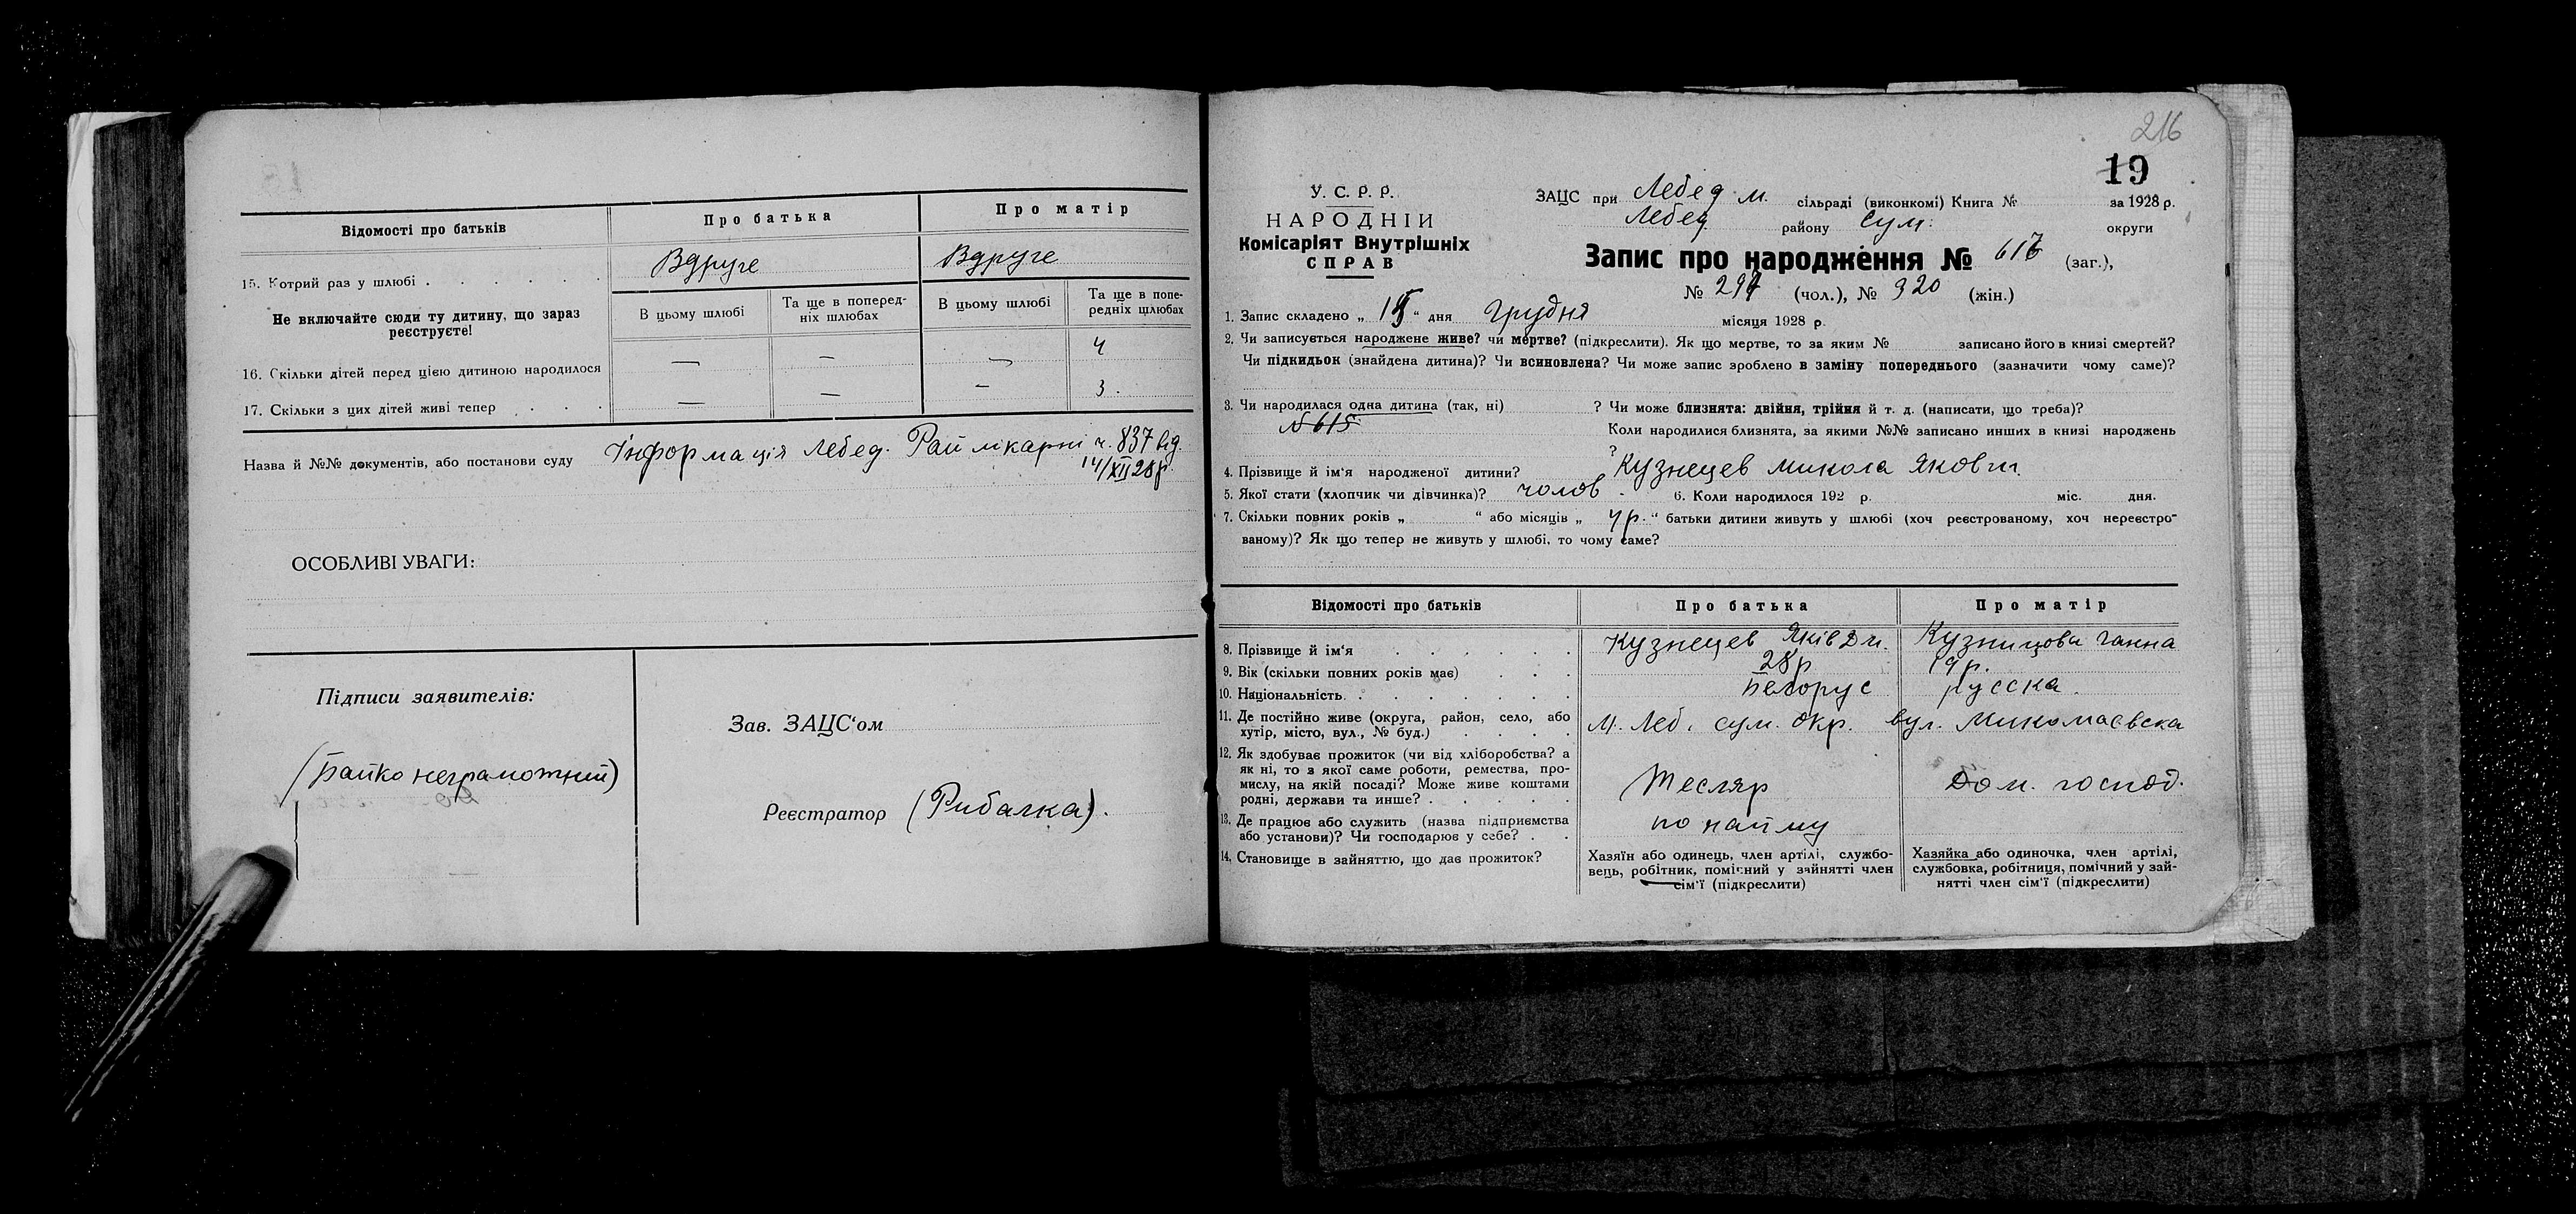 Відомості про батьків
Про батька
Про матір
15. Котрий раз у шлюбі
Вдруге
Вдруге
Не включайте сюди ту дитину, що зараз
реєструєте!
В цьому шлюбі
Та ще в поперед-
ніх шлюбах
В цьому шлюбі
Та ще в попе-
редніх шлюбах
16. Скільки дітей перед цією дитиною народилося
—
—
—
4
17. Скільки з цих дітей живі тепер
—
—
—
3.
Назва й №№ документів, або постанови суду
Інформація Лебед. Райлікарні ч. 837 від
14/XII 28 р.
ОСОБЛИВІ УВАГИ:
Підписи заявителів:
(Батько неграмотний)
Зав. ЗАЦС‘ом
Реєстратор (Рибалка).
216
19
У. С. Р. Р.
НАРОДНІЙ
Комісаріят Внутрішніх
СПРАВ
ЗАЦС при Лебед м. сільраді (виконкомі) Книга № за 1928 р.
Лебед. району Сум. округи
Запис про народження № 616 (заг.),
№ 297 (чол.), № 320 (жін.)
1. Запис складено „ 15 “ дня Грудня місяця 1928 р.
2. Чи записується народжене живе? чи мертве? (підкреслити). Як що мертве, то за яким № записано його в книзі смертей?
Чи підкидьок (знайдена дитина)? Чи всиновлена? Чи може запис зроблено в заміну попереднього (зазначити чому саме)?
3. Чи народилася одна дитина (так, ні) ? Чи може близнята: двійня, трійня й т. д. (написати, що треба)?
№ 615
Коли народилися близнята, за якими №№ записано инших в книзі народжень
?
4. Прізвище й ім‘я народженої дитини? Кузнецев Микола Яковл.
5. Якої стати (хлопчик чи дівчинка)? чолов. 6. Коли народилося 192 р. міс. дня.
7. Скільки повних років „ “ або місяців „ 4 р. “ батьки дитини живуть у шлюбі (хоч реєстрованому, хоч нереєстро-
ваному)? Як що тепер не живуть у шлюбі, то чому саме?
Відомості про батьків
Про батька
Про матір
8. Прізвище й ім‘я
Кузнецев Яків Дм.
Кузницова Ганна
9. Вік (скільки повних років має)
28 р
29 р.
10. Національність
Белорус
русска.
11. Де постійно живе (округа, район, село, або
хутір, місто, вул., № буд.)
м. Леб. Сум. Окр. вул. Миколаєвска
12. Як здобуває прожиток (чи від хліборобства? а
як ні, то з якої саме роботи, ремества, про-
мислу, на якій посаді? Може живе коштами
родні, держави та инше?
Тесляр
Дом. господ.
13. Де працює або служить (назва підприємства
або установи)? Чи господарює у себе?
по найму
14. Становище в зайняттю, що дає прожиток?
Хазяїн або одинець, член артілі, службо-
вець, робітник, помічний у зайнятті член
сім‘ї (підкреслити)
Хазяйка або одиночка, член артілі,
службовка, робітниця, помічний у зай-
нятті член сім‘ї (підкреслити)